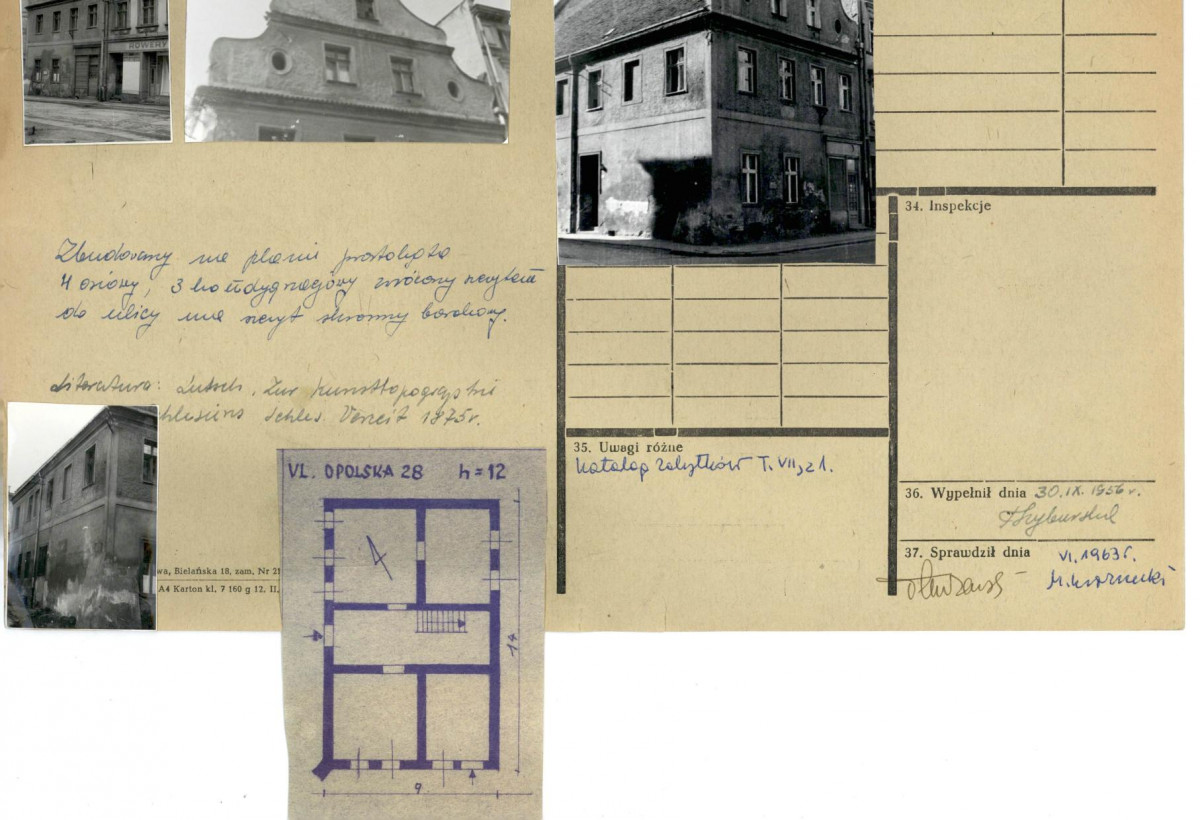 ROWERY
Zbudowany na planie prostokąta
4 osiowy, 3 kondygnacjowy zwrócony szczytem
do ulicy ma szczyt skromny barokowy.
Literatura: Lutsch, Zur Kunsttopographie
hlesiens Schles. Vorzeit 1875r.
wa, Bielańska 18, zam. Nr 2
A4 Karton kl. 7 160 g 12. II.
VL. OPOLSKA 28 h=12
14
9
34. Inspekcje
35. Uwagi różne
Katalog zabytków T. VII, z 1.
36. Wypełnił dnia 30.IX.1956 r.
37. Sprawdził dnia VI.1963 r.